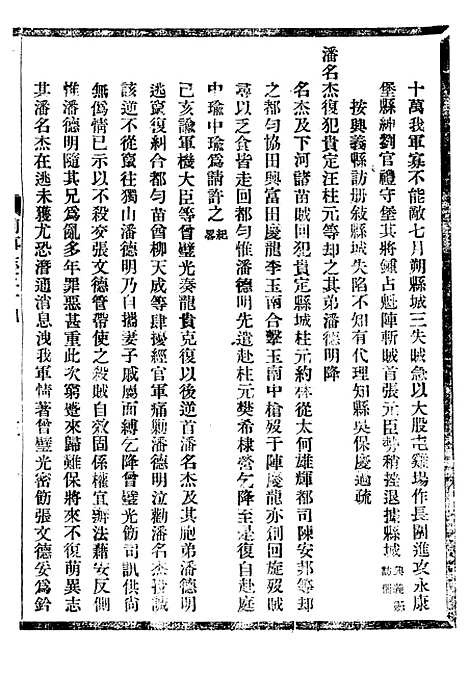 十萬我軍寡不能敵七月朔縣城三失賊急以大股屯雞場作長圍進攻永康
堡縣紳劉官禮守堡其將鍾占魁陣斬賊首張元臣勢稍挫退據縣城興義縣訪冊
按興義縣訪册敘縣城失陷不知有代理知縣吳保慶過疏
潘名杰復犯貴定汪柱元等却之其弟潘德明降
名杰及下河諸苗賊回犯貴定縣城柱元約林從太何雄輝都司陳安邦等却
之都勻協田興富田慶龍李玉南合擊玉南中槍歿于陣慶龍亦創回旋歿賊
尋以乏食皆走回都勻惟潘德明先遣赴柱元樊希棣營乞降至是復自赴庭
中瑜中瑜爲請許之紀畧
己亥諭軍機大臣等曾璧光奏龍貴克復以後逆首潘名杰及其胞弟潘德明
逃竄復糾合都勻苗酋柳天成等肆擾經官軍痛勦潘德明泣勸潘名杰投誠
該逆不從竄往獨山潘德明乃自攜妻子戚屬面縛乞降曾璧光飭司訊供尚
無僞情已示以不殺交張文德管帶使之殺賊自效固係權宜辦法藉安反側
惟潘德明隨其兄爲亂多年罪惡甚重此次窮蹙來歸難保將來不復萌異志
其潘名杰在逃未獲尤恐潛通消息洩我軍情著曾璧光密飭張文德妥爲鈐